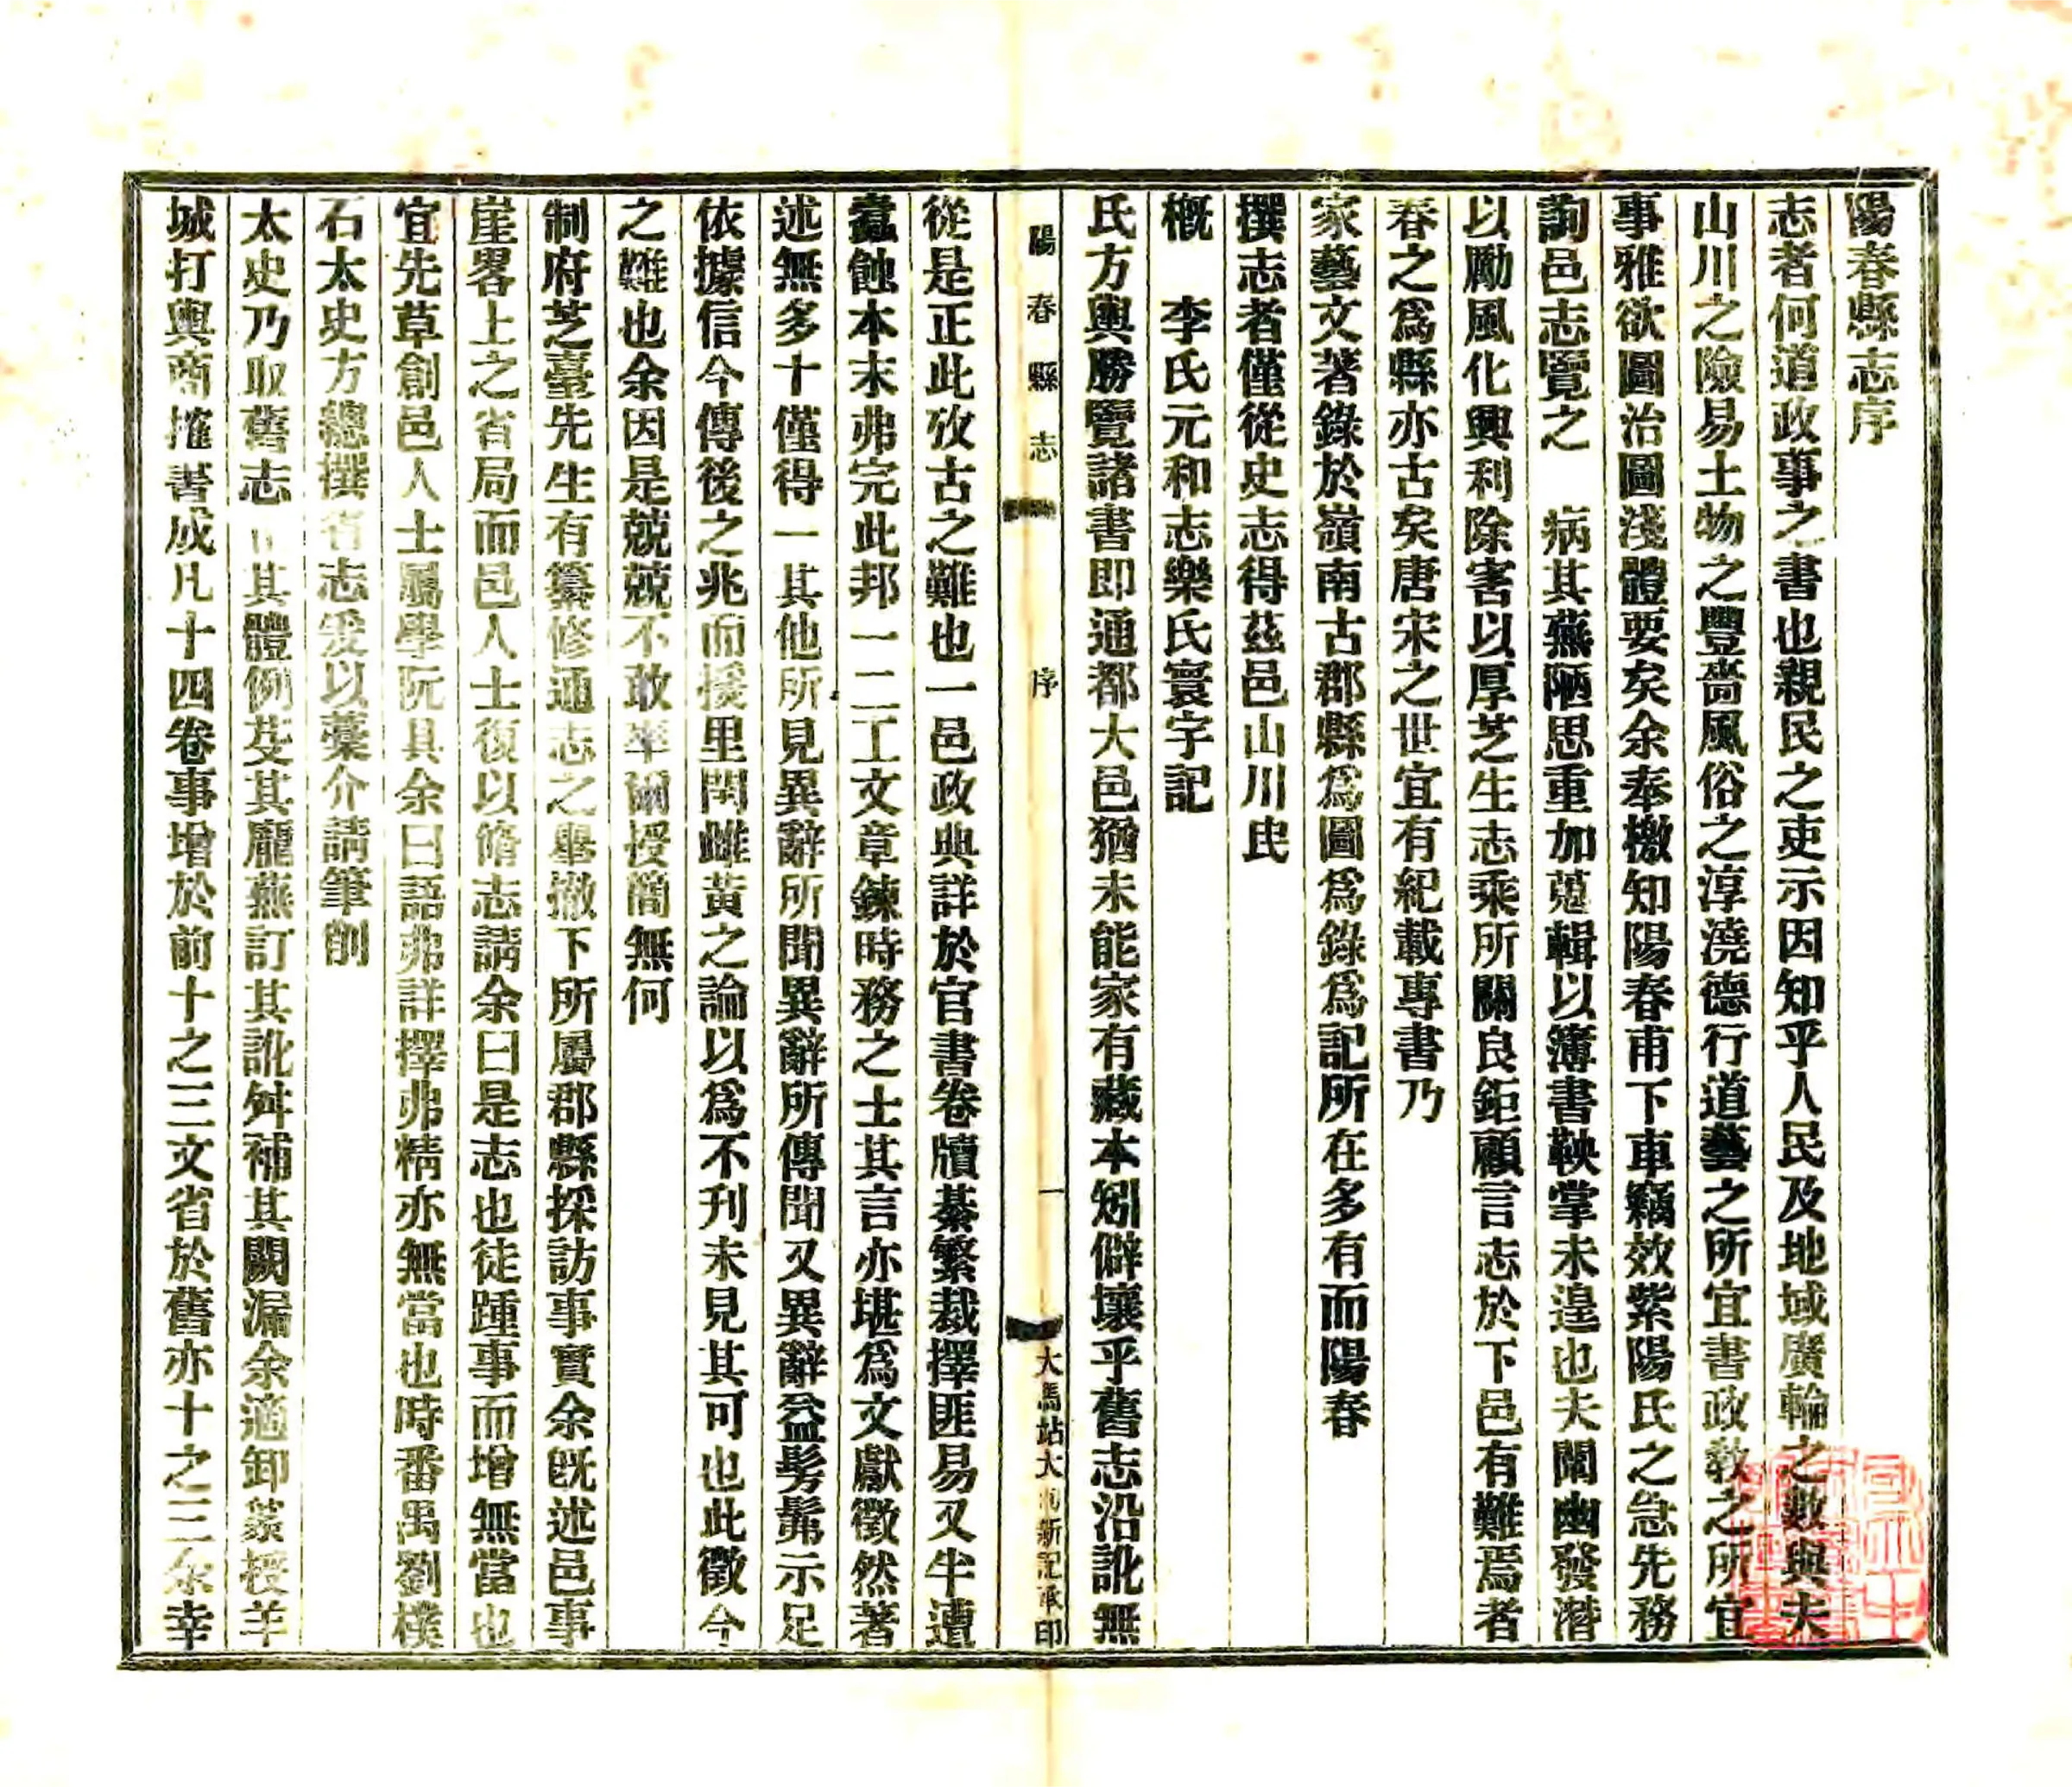 陽春縣志序
志者何道政事之書也親民之吏示因知乎人民及地域廣輪之數與夫
山川之險易土物之豐嗇風俗之淳澆德行道藝之所宜書政教之所宜
事雅欲圖治圖淺體要矣余奉檄知陽春甫下車竊效紫陽氏之急先務
詢邑志覽之 病其蕪陋思重加蒐輯以簿書鞅掌未遑也夫闡幽發潛
以勵風化興利除害以厚芝生志乘所關良鉅顧言志於下邑有難焉者
春之爲縣亦古矣唐宋之世宜有紀載專書乃
家藝文著錄於嶺南古郡縣爲圖爲錄爲記所在多有而陽春
撰志者僅從史志得茲邑山川㕥
概 李氏元和志樂氏寰宇記
氏方輿勝覽諸書即通都大邑猶未能家有藏本矧僻壤乎舊志沿訛無
陽春縣志 序 一 大馬站大 新記承印
從是正此攷古之難也一邑政典詳於官書卷牘綦繁裁擇匪易又半遭
蠹蝕本末弗完此邦一二工文章鍊時務之士其言亦堪爲文獻徵然著
述無多十僅得一其他所見異辭所聞異辭所傳聞又異辭益髣髴示足
依據信今傳後之兆而援里閈雌黃之論以爲不刋未見其可也此徵今
之難也余因是兢兢不敢率爾授簡無何
制府芝臺先生有纂修通志之舉撤下所屬郡縣採訪事實余旣述邑事
崖畧上之省局而邑人士復以脩志請余曰是志也徒踵事而增無當也
宜先草創邑人士屬學阮具余曰語弗詳擇弗精亦無當也時番禺劉樸
石太史方總撰省志爰以藁介請筆削
太史乃取舊志 其體例芟其龐蕪訂其訛舛補其闕漏余適卸篆授羊
城打輿商搉書成凡十四卷事增於前十之三文省於舊亦十之三余幸